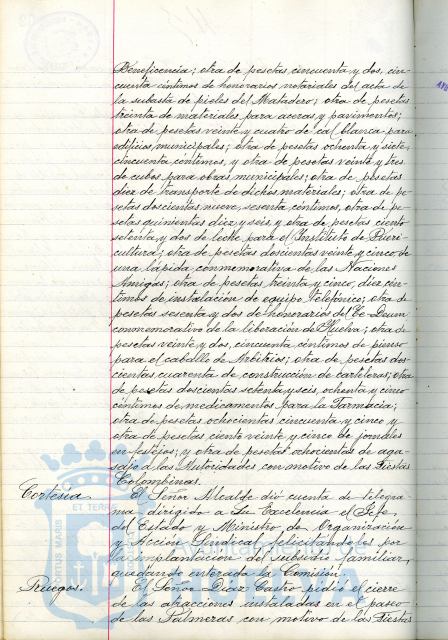 Beneficencia; otra de pesetas cincuenta y dos, cin-
cuenta céntimos de honorarios notariales del acta de
la subasta de pieles del Matadero; otra de pesetas
treinta de materiales para aceras y pavimentos;
otra de pesetas veinte y cuatro de cal blanca para
edificios municipales; otra de pesetas ochenta y siete,
cincuenta céntimos, y otra de pesetas veinte y tres
de cubos para obras municipales; otra de pesetas
diez de transporte de dichos materiales; otra de pe-
setas doscientas nueve, sesenta céntimos, otra de pe-
setas quinientas diez y seis y otra de pesetas ciento
setenta y dos de leche para el Instituto de Pueri-
cultura; otra de pesetas doscientas veinte y cinco de
una lápida conmemorativa de las Naciones
Amigas; otra de pesetas treinta y cinco, diez cén-
timos de instalación de equipo telefónico; otra de
pesetas sesenta y dos de honorarios del Te-Deum
conmemorativo de la liberación de Huelva; otra de
pesetas veinte y dos, cincuenta céntimos de pienso
para el caballo de Arbitrios; otra de pesetas dos-
cientas cuarenta de construcción de carteleras; otra
de pesetas doscientas setenta y seis, ochenta y cinco
céntimos de medicamentos para la Farmacia;
otra de pesetas ochocientas cincuenta y cinco y
otra de pesetas ciento veinte y cinco de jornales
en festejos; y otra de pesetas ochocientas de aga-
sajo a las Autoridades con motivo de las Fiestas
Colombinas.
Cortesía. El Señor Alcalde dió cuenta de telegra-
ma dirigido a Su Excelencia el Jefe
del Estado y Ministro de Organización
y Acción Sindical felicitándoles por
la implantación del subsidio familiar,
quedando enterada la Comisión.
Ruegos. El Señor Díaz Castro pidió el cierre
de las atracciones instaladas en el paseo
de las Palmeras con motivo de las Fiestas